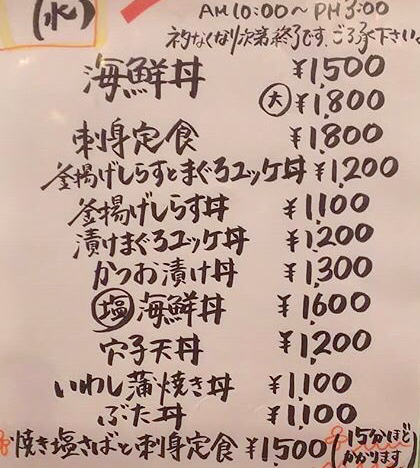 (水)
AM10:00〜PM3:00
ネタなくなり次第終了です。ご了承下さい。
海鮮丼 ¥1,500
大 ¥1,800
刺身定食 ¥1,800
釜揚げしらすとまぐろユッケ丼 ¥1,200
釜揚げしらす丼 ¥1,100
漬けまぐろユッケ丼 ¥1,200
かつお漬け丼 ¥1,300
塩海鮮丼 ¥1,600
穴子天丼 ¥1,200
いわし蒲焼き丼 ¥1,100
ぶた丼 ¥1,100
焼き塩さばと刺身定食 ¥1,500 (15分ほど
かかります